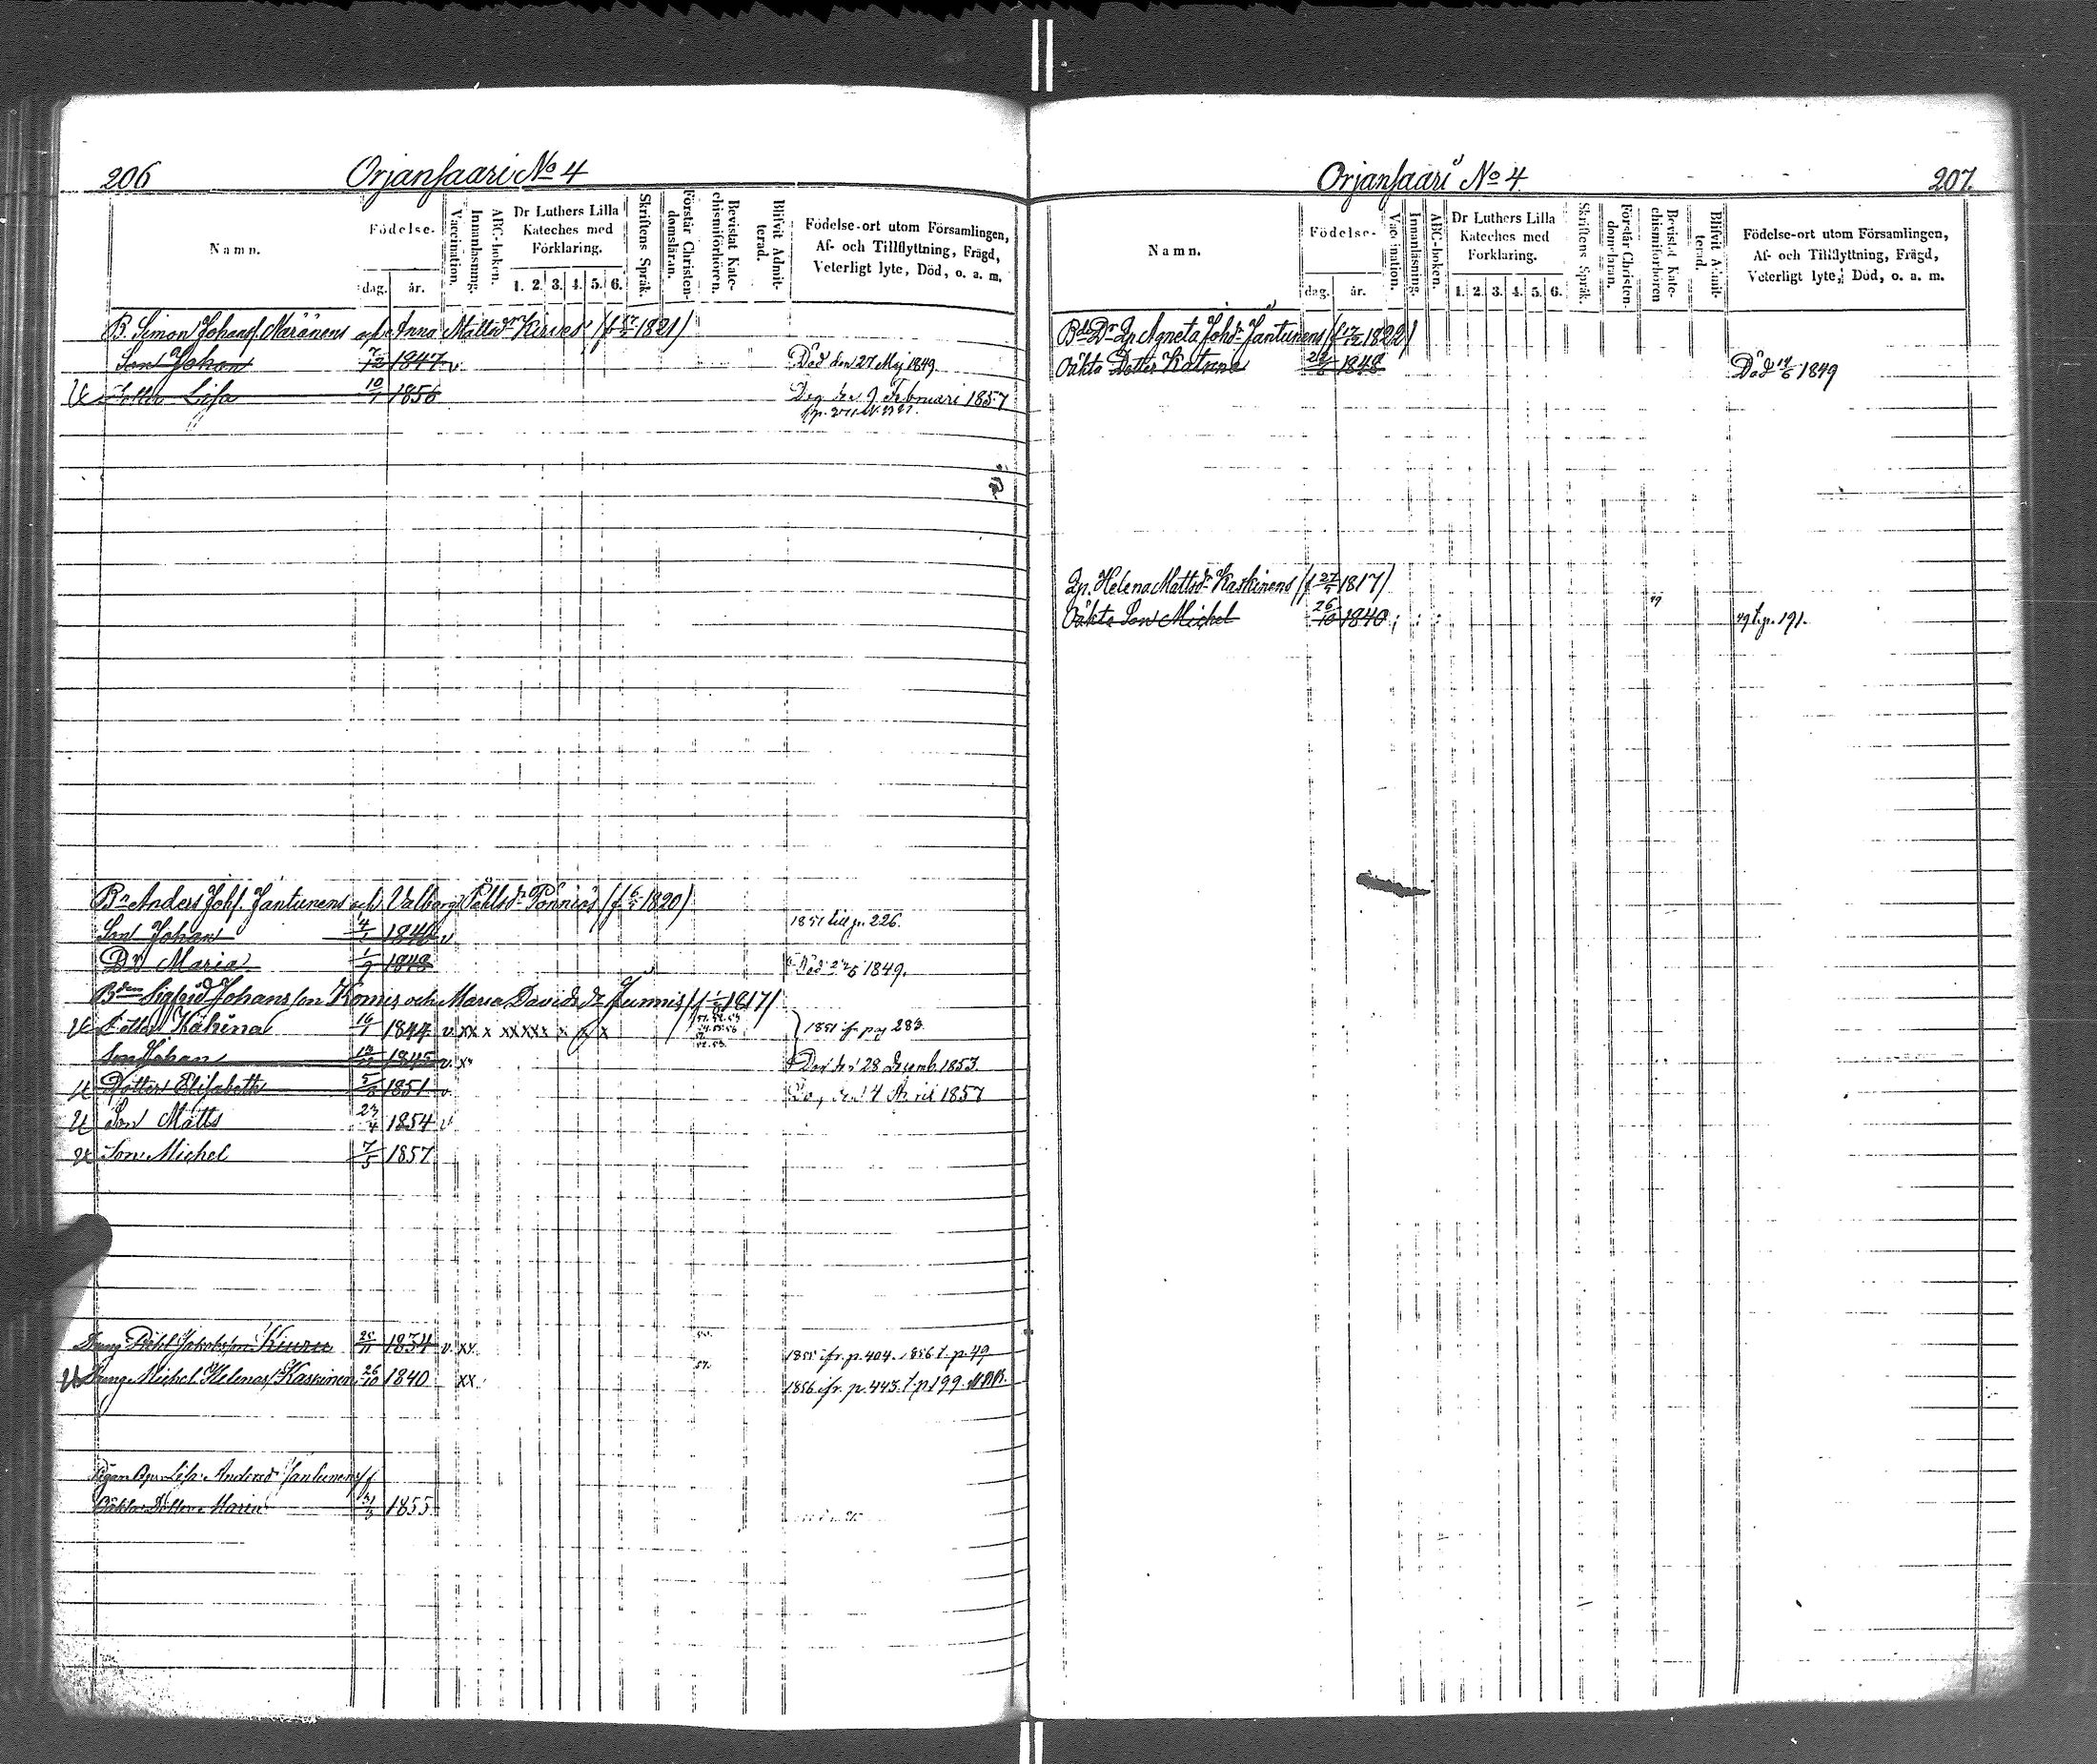 206 Orjansaari No 4
Namn.
Födelse-
dag. år.
Vaccination.
Innanläsning.
ABC-boken.
Dr Luthers Lilla
Kateches med
Förklaring.
1. 2. 3. 4. 5. 6.
Skriftens Språk.
Förstår Christen-
domsläran.
Bevistat Kate-
chismiförhören.
Blifvit Admit-
terad.
Födelse-ort utom Församlingen,
Af- och Tillflyttning, Frägd,
Veterligt lyte, Död, o. a. m.
B. Simon Johansf. och Anna Mattsdr Kirves 1821)
Son Johan 7/12 1847 v Död den 27 Maj 1849
Dotter Lisa 10/1 1856 den 9 Februari 1857
Bn Anders Johf. Jantunens och Valborg Påhlsdr Pönniäs (f 6/5 1820)
Son Johan 4/1 1846 v 1851 till p. 226.
Dr Maria 1/9 1848 Död 1849.
Bden Sigfrid Johansson Komis och Maria Davidsdr Junnis 1817/
Dotter Kahina 16/1 1844 v xx x xxxxx x x x 1851 ifr pag 283
Son Johan 1845 v x Död den 28 decemb. 1853
Dotter Elisabeth 1851 v Do, den 4 April 1857
Son Matts 23/4 1854 v
Son Michel 7/5 1857
Dreng Påhl Jakobsson Kiuru 1834 v xx 1855 ifr. p. 404. 1856 t. p. 49
Dreng Michel Helenas Kaskinen 26/10 1840 xx 1856 ifr. p. 443. t. p 199.
Lisa Andersd. Jantunens
Oäkta Dotter Maria 1855
Orjansaari No 4 207.
Namn.
Födelse-
dag. år.
Vaccination.
Innanläsning.
ABC-boken.
Dr Luthers Lilla
Kateches med
Förklaring.
1. 2. 3. 4. 5. 6.
Skriftens Språk.
Förstår Christen-
domsläran.
Bevistat Kate-
chismiförhören
Blifvit Admit-
terad.
Födelse-ort utom Församlingen,
Af- och Tillflyttning, Frägd,
Veterligt lyte, Död, o. a. m.
Agneta Johdr Jantunens (f 1822)
Oäkta Dotter Katrina 1848 Död 14/6 1849
Qp. Helena Mattsdr Kaskinens (f 1817)
Oäkta Son Michel 26/10 1840 49 49 t. p. 191.